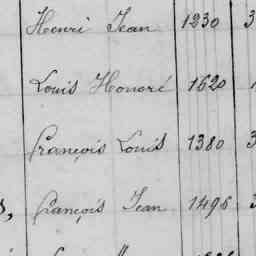 Henri Jean 1230 3
Louis Honoré 1620
François Louis 1380 3
François Jean 1496 3